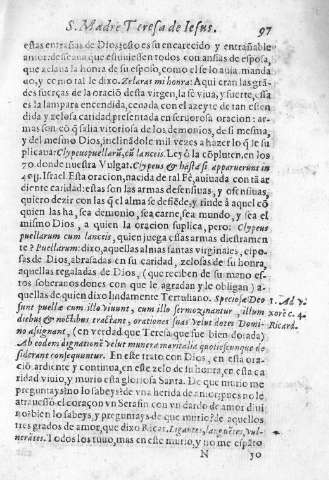 S. Madre Teresa de Iesus. 97
estas entrañas de Dios: esto es su encarecido y entrañable
amor: deseaua que estuuiessen todos con ansias de esposa,
que zelaua la honra de su esposo, como el se lo auia manda
do, y como tal le dixo. Zelaras mi honra: Aqui eran las grã
des fuerças de la oraciõ desta virgen, la fè viua, y fuerte, esta
es la lampara encendida, ceuada con el azeyte de tan esten
dida y zelosa caridad, presentada en feruorosa oracion: ar-
mas son cõ q̃ salia vitoriosa de los demonios, de si mesma,
y del mesmo Dios, inclinãdole mil vezes a hazer lo q̃ le su
plicaua: Clypeus puellarũ, cũ lanceis. Leyò la cõpluten, en los
yo donde nuestra Vulgat. Clypeus & hasta si apparuerint in
40. Israel. Esta oracion, nacida de tal Fè, auiuada con tã ar
diente caridad: estas son las armas defensiuas, y ofensiuas,
quiero dezir con las q̃ el alma se defiẽde, y rinde à aquel cõ
quien las ha, sea demonio, sea carne, sea mundo, y sea el
mismo Dios, a quien la oracion suplica, pero: Clypeus
puellarum cum lanceis, quien juega essas armas diestramen
te? Puellarum: dixo, aquellas almas santas virginales, espo-
sas de Dios, abrasadas en su caridad, zelosas de su honra,
aquellas regaladas de Dios, (que reciben de su mano es-
tos soberanos dones con que le agradan y le obligan) a-
quellas de quien dixo lindamente Tertuliano. Speciosæ Deo 1. Ad v
sunt puellæ cum illo viuunt, cum illo sermozinantur, illum xorẽ c. 4.
diebus & noctibus tractant, orationes suas velut dotes Domi- Ricard.
no assignant, (en verdad que Teresa que fue bien dotada)
Ab eodem dignationẽ velut munera maritalia quotiescunque de
siderant consequuntur. En este trato con Dios, en esta ora-
ciõ ardiente y continua, en este zelo de su honra, en esta ca
ridad viuio, y murio esta gloriosa Santa. De que murio me
preguntays? no lo sabeys? de vna herida de amor: pues no le
atrauessò el coraçon vn Serafin con vn dardo de amor diui
no? bien lo sabeys, y preguntays de que murio? de aquellos
tres grados de amor, que dixo Ricar. Ligantes, languẽtes, vul-
nerãtes. Todos los tuuo, mas en este murio, y no me espãto
N 30